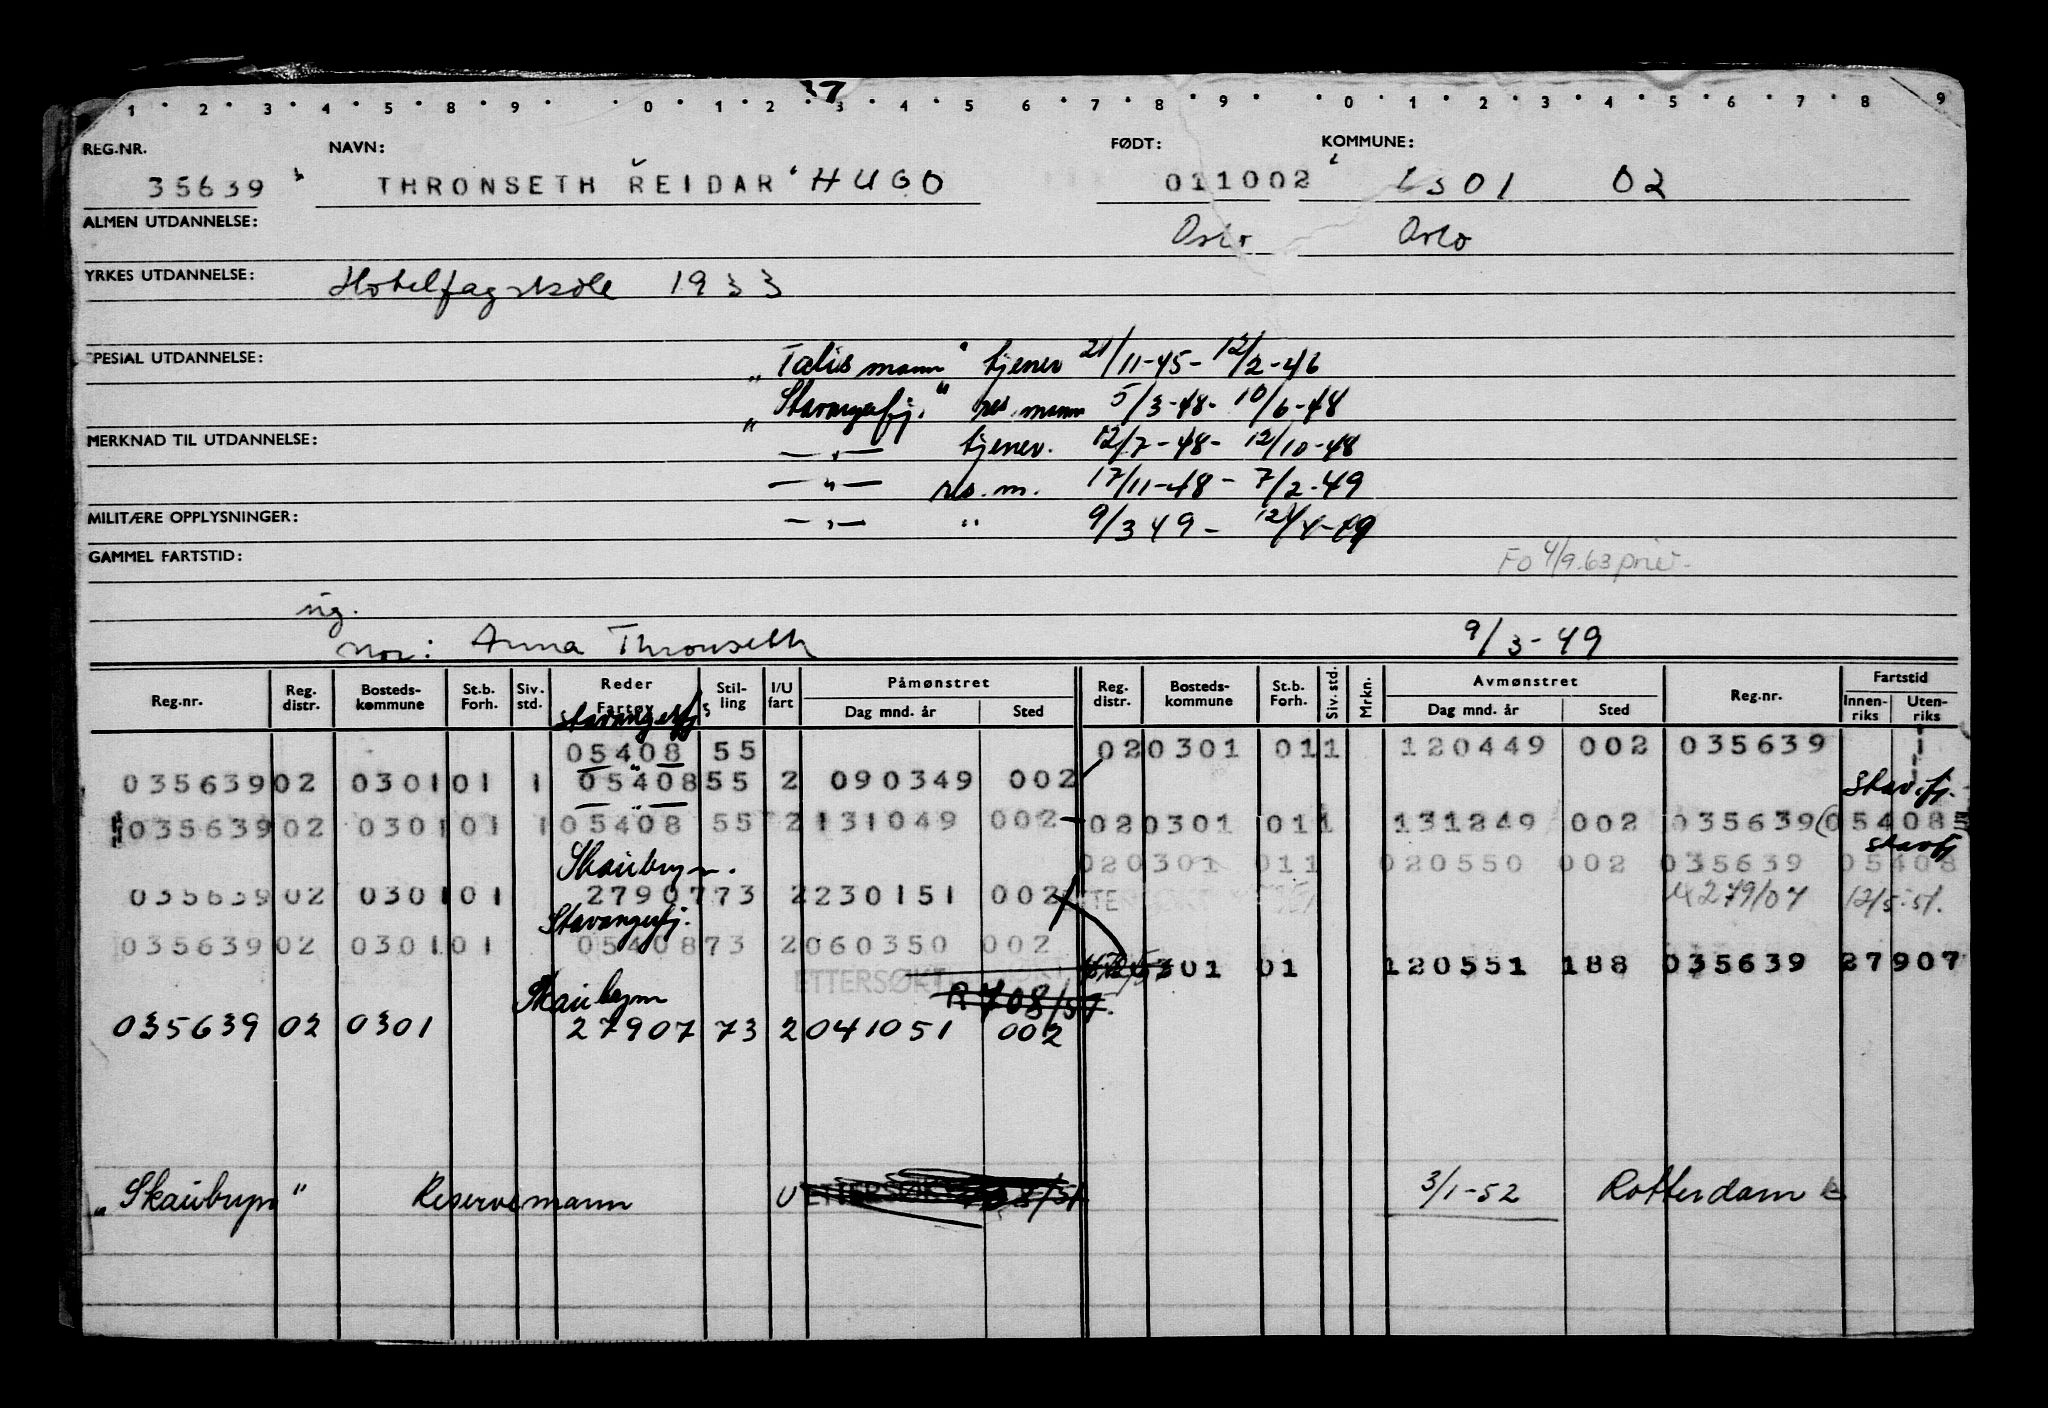 1 2 3 4 5 8 9 0 1 2 37 4 5 6 7 8 9 0 1 2 3 4 5 6 7 8 9
REG.NR. NAVN: FØDT: KOMMUNE:
35639 THRONSETH REIDAR HUGO 011002 1301 02
ALMEN UTDANNELSE: Oslo Oslo
YRKES UTDANNELSE: Hotelfagskole 1933
SPESIAL UTDANNELSE: "Talismann" tjener 21/11-45 - 12/2-46
"Stavangerfj." res.mann 5/3-48 - 10/6-48
MERKNAD TIL UTDANNELSE: —"— tjener. 12/7-48 - 12/10-48
—"— res.m. 17/11-48 - 7/2-49
MILITÆRE OPPLYSNINGER: —"— " 9/3 49 - 12/4-49
GAMMEL FARTSTID: FO 4/9.63 priv.
ug.
Mor: Anna Thronseth 9/3-49
Reg.nr. Reg. distr. Bosteds-kommune St.b. Forh. Siv. std. Reder Fartøy Stil-ling I/U fart Påmønstret Dag mnd. år Sted Reg. distr. Bosteds-kommune St.b. Forh. Siv. std. Mrkn. Avmønstret Dag mnd. år Sted Reg.nr. Fartstid Innen-riks Uten-riks
Stavangerfj
05408 55 02 0301 01 1 120449 002 035639
035639 02 0301 01 1 05408 55 2 090349 002 Stav.fj.
035639 02 0301 01 1 05408 55 2 131049 002 02 0301 01 1 131249 002 035639 05408
Stavfj
Skaubryn. 020301 011 020550 002 035639 05408
035639 02 0301 01 27907 73 2 230151 002 279/07 12/5-51.
Stavangerfj.
035639 02 0301 01 05408 73 2 060350 002
0301 01 120551 188 035639 27907
ETTERSØKT
Skaubryn R 708/51.
035639 02 0301 27907 73 2 041051 002
"Skaubryn" Reservemann U ETTERSØKT 3/1-52 Rotterdam